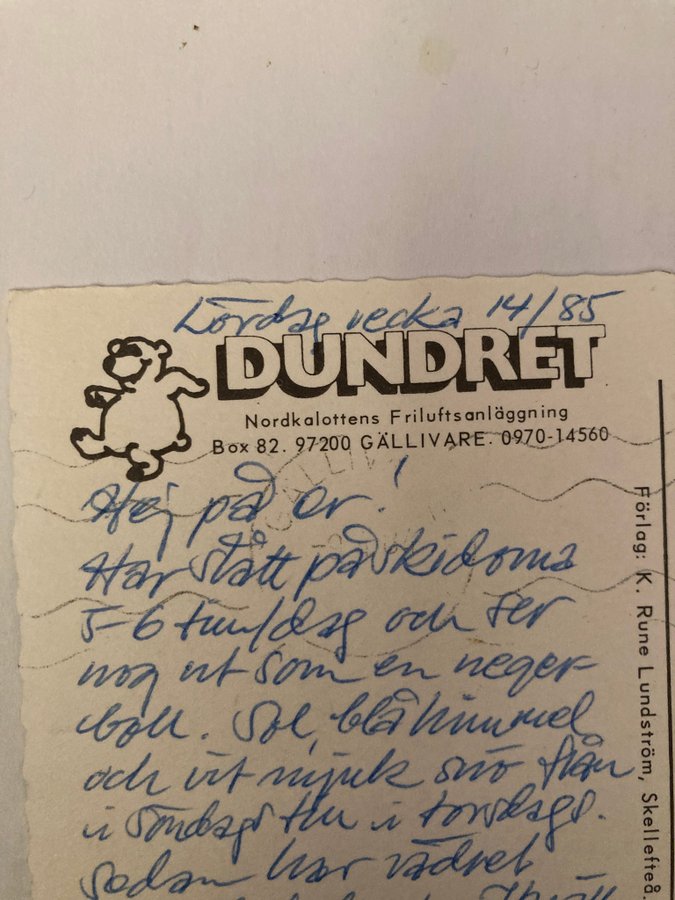 Lördag vecka 14/85
DUNDRET
Nordkalottens Friluftsanläggning
Box 82. 97200 GÄLLIVARE. 0970-14560
Hej på er!
Har stått på skidorna
5-6 tim/dag och ser
nog ut som en neger-
boll. Sol, blå himmel
och vit mjuk snö från
i söndags till i torsdags.
Sedan har vädret
Förlag: K. Rune Lundström, Skellefteå.